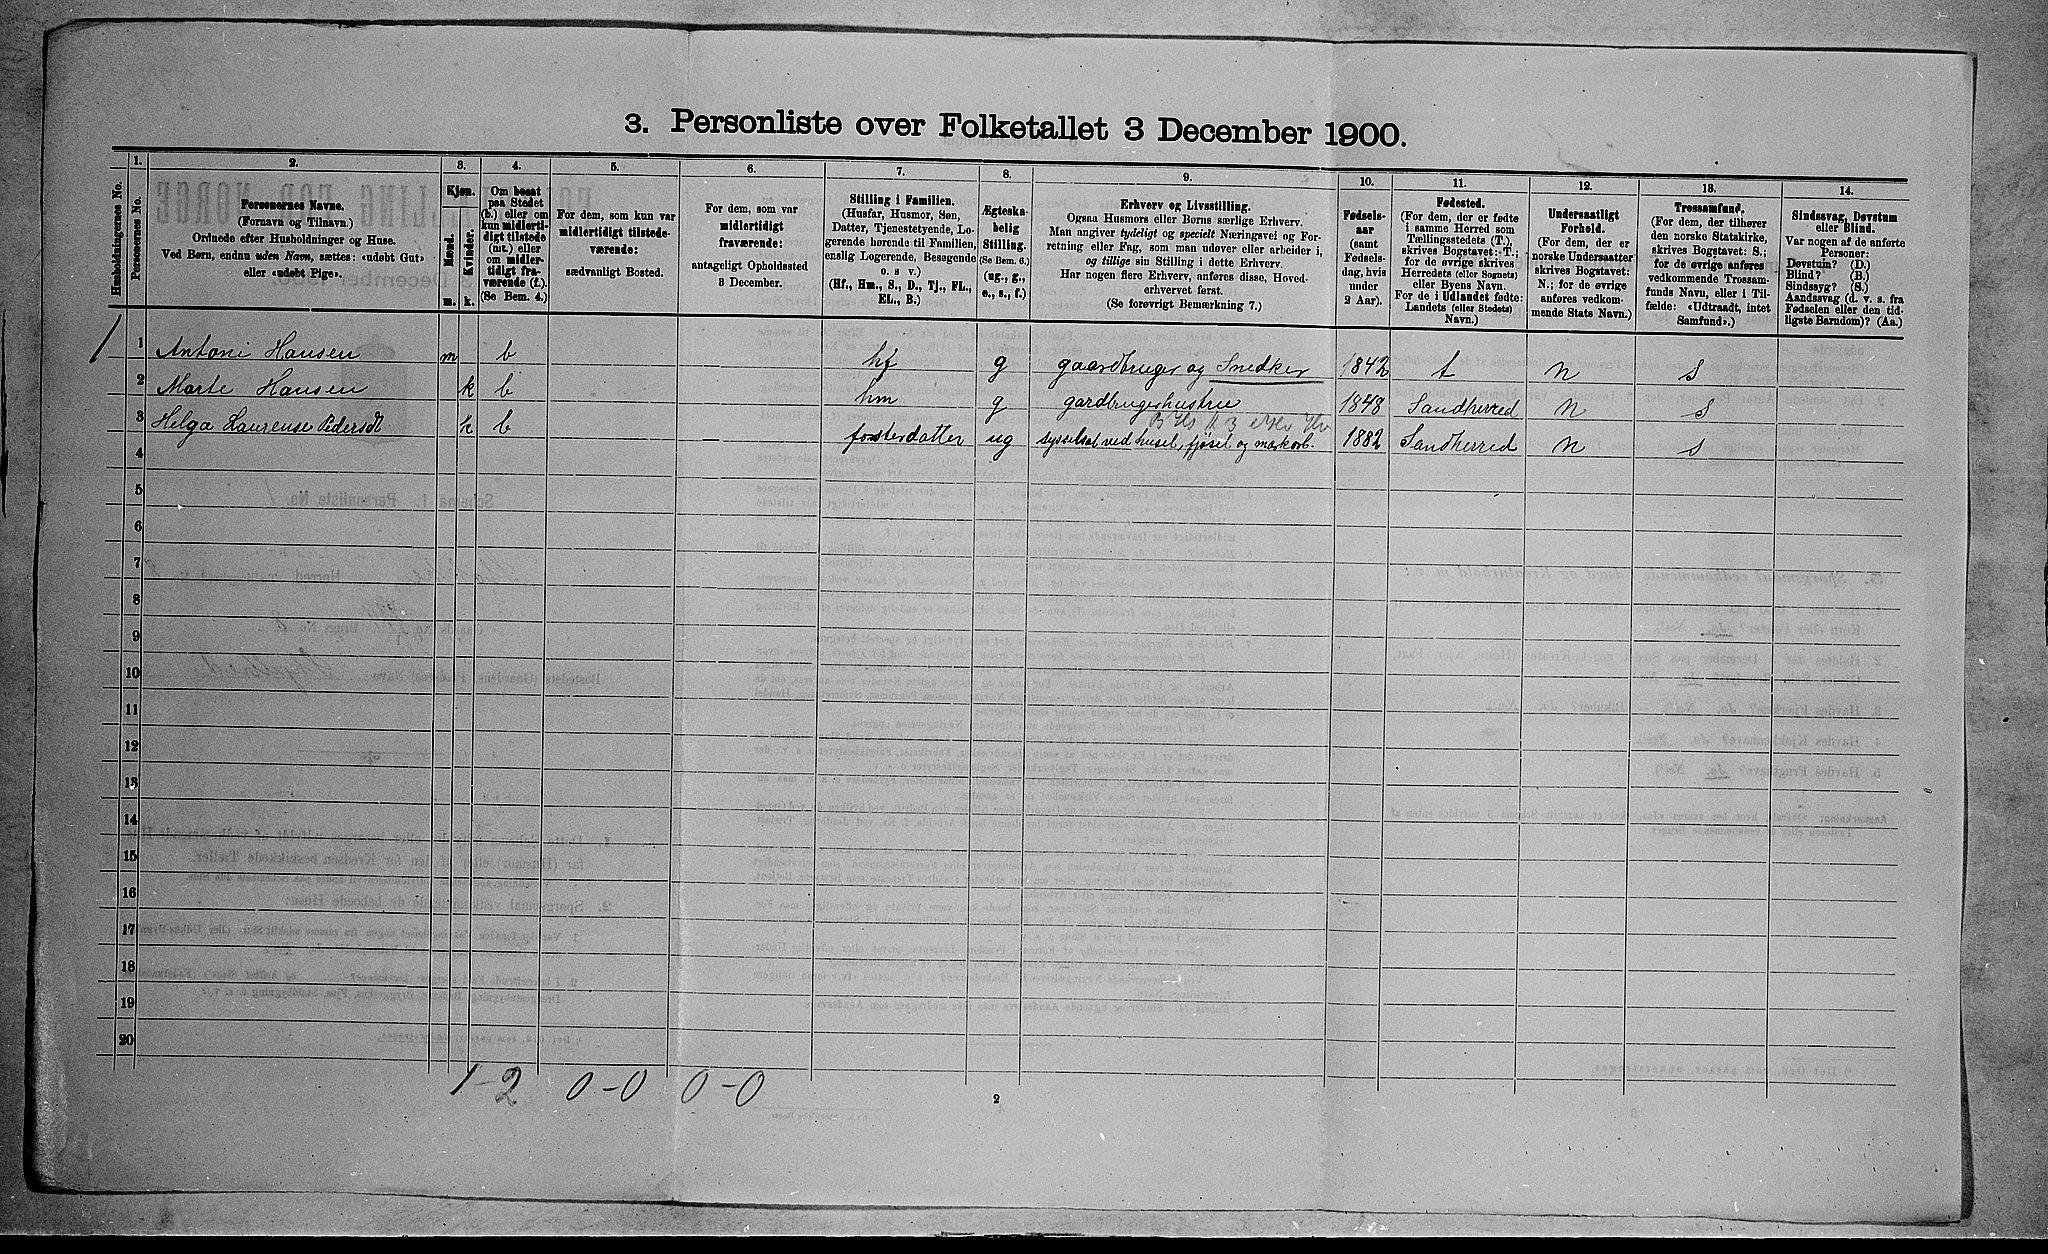 3. Personliste over Folketallet 3 December 1900.
Husholdningernes No.
1.
Personernes No.
2.
Personernes Navne.
(Fornavn og Tilnavn.)
Ordnede efter Husholdninger og Huse.
Ved Børn, endnu uden Navn, sættes: «udøbt Gut»
eller «udøbt Pige».
3.
Kjøn.
Mænd.
Kvinder.
m.
k.
4.
Om bosat
paa Stedet
(b.) eller om
kun midlerti-
digt tilstede
(mt.) eller
om midler-
tidigt fra-
værende (f.).
(Se Bem. 4.)
5.
For dem, som kun var
midlertidigt tilstede-
værende:
sædvanligt Bosted.
6.
For dem, som var
midlertidigt
fraværende:
antageligt Opholdssted
3 December.
7.
Stilling i Familien.
(Husfar, Husmor, Søn,
Datter, Tjenestetyende, Lo-
gerende hørende til Familien,
enslig Logerende, Besøgende
o. s. v.)
(Hf., Hm., S., D., Tj., FL.,
EL., B.)
8.
Ægteska-
belig
Stilling.
(Se Bem. 6.)
(ug., g.,
e., s., f.)
9.
Erhverv og Livsstilling.
Ogsaa Husmors eller Børns særlige Erhverv.
Man angiver tydeligt og specielt Næringsvei og For-
retning eller Fag, som man udøver eller arbeider i,
og tillige sin Stilling i dette Erhverv.
Har nogen flere Erhverv, anføres disse, Hoved-
erhvervet først.
(Se forøvrigt Bemærkning 7.)
10.
Fødsels-
aar
(samt
Fødsels-
dag, hvis
under
2 Aar).
11.
Fødested.
(For dem, der er fødte
i samme Herred som
Tællingsstedets (T.),
skrives Bogstavet: T.;
for de øvrige skrives
Herredets (eller Sognets)
eller Byens Navn.
For de i Udlandet fødte:
Landets (eller Stedets)
Navn.)
12.
Undersaatligt
Forhold.
(For dem, der er
norske Undersaatter
skrives Bogstavet:
N.; for de øvrige
anføres vedkom-
mende Stats Navn.)
13.
Trossamfund.
(For dem, der tilhører
den norske Statskirke,
skrives Bogstavet: S.;
for de øvrige anføres
vedkommende Trossam-
funds Navn, eller i Til-
fælde: «Udtraadt, intet
Samfund».)
14.
Sindssvag, Døvstum
eller Blind.
Var nogen af de anførte
Personer:
Døvstum? (D.)
Blind? (B.)
Sindssyg? (S.)
Aandssvag (d. v. s. fra
Fødselen eller den tid-
ligste Barndom)? (Aa.)
1 1 Antoni Hansen m b hf g gaardbruger og Snedker 1842 t N S
2 Marte Hansen k b hm g gardbrugerhustru 1848 Sandherred N S
3 Helga Laurense Pedersdt. k b fosterdatter ug sysselsat ved husel, fjøsel og markarb. 1882 Sandherred N S
4
5
6
7
8
9
10
11
12
13
14
15
16
17
18
19
20
1-2 0-0 0-0
2